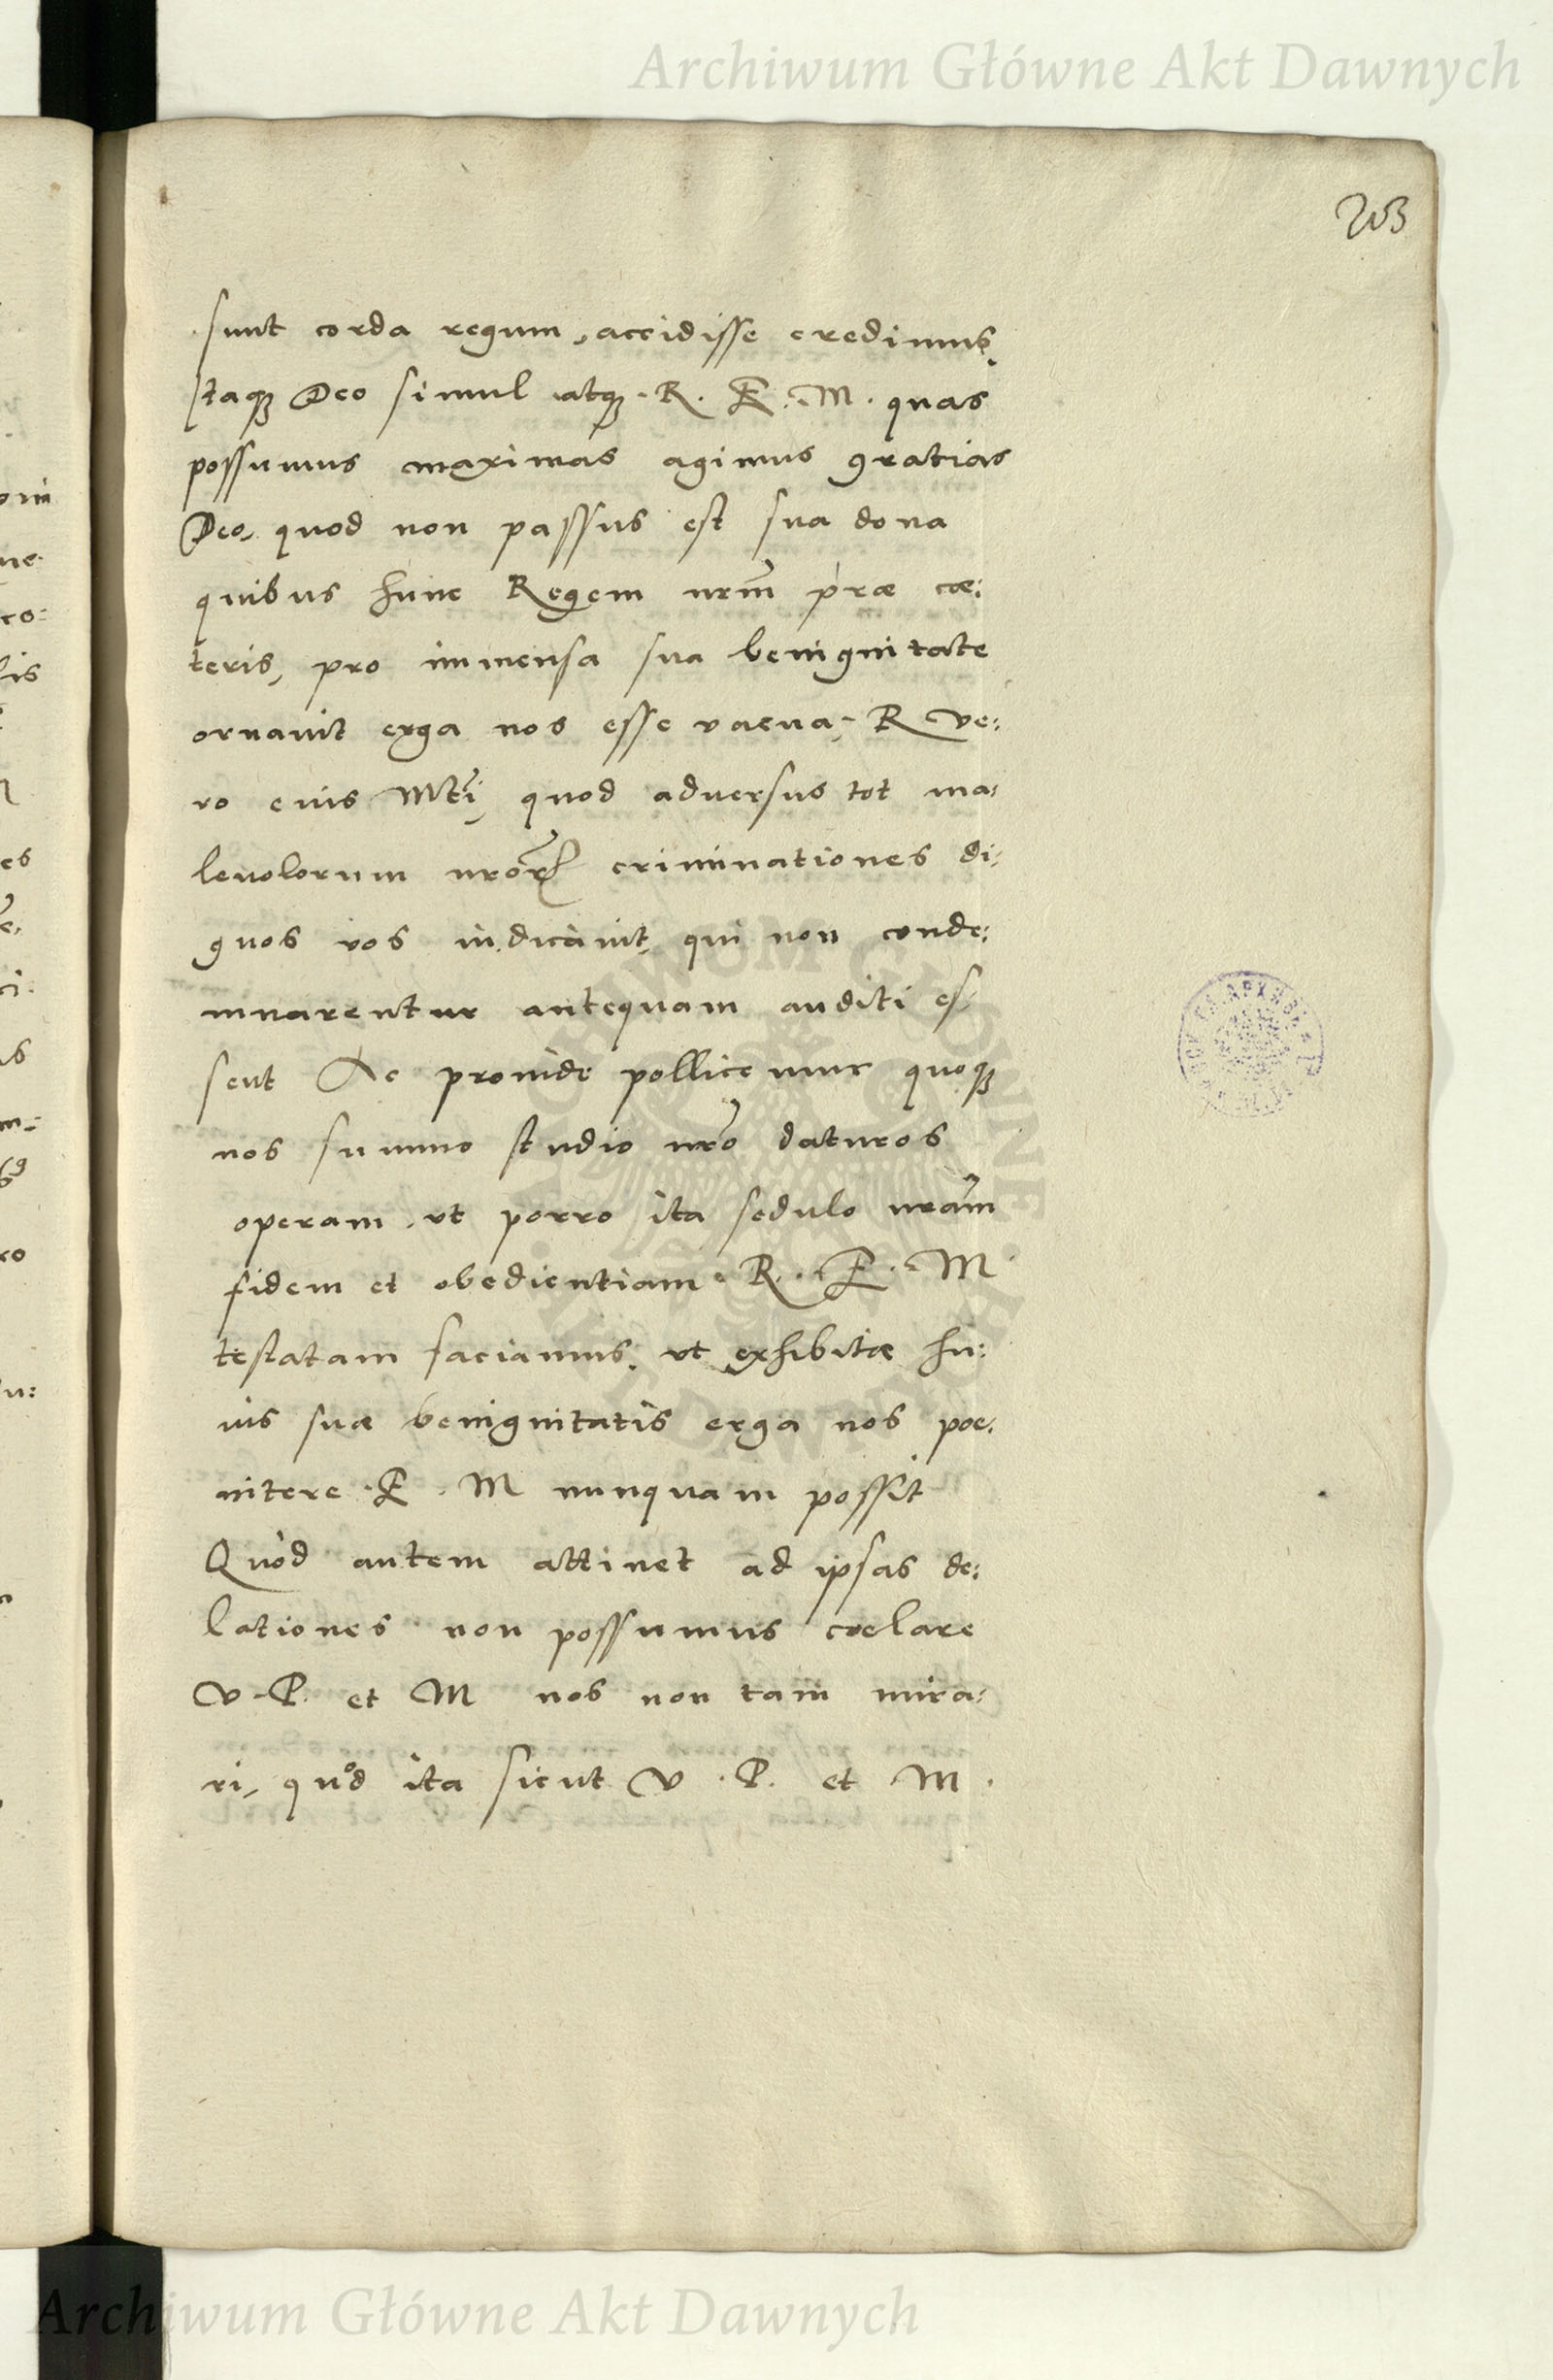 Archiwum Główne Akt Dawnych
203
sunt corda regum, accidisse credimus.
Itaq; Deo simul atq; R. E. M. quas
possumus maximas agimus gratias
Deo, quod non passus est sua dona
quibus hunc Regem nrm̃ præ cæ:
teris, pro immensa sua benignitate
ornauit erga nos esse vacua, R ve:
ro eius Mti, quod aduersus tot ma:
leuolorum nrõrum criminationes di:
gnos nos indicauit, qui non conde:
mnarentur antequam auditi es:
sent Ac proinde pollicemur quoq;
nos summo studio nrõ daturos
operam, vt porro ita sedulo nrãm
fidem et obedientiam R. E. M
testatam faciamus, vt exhibitæ hu:
ius suæ benignitatis erga nos poe:
nitere E. M nunquam possit
Quòd autem attinet ad ipsas de:
lationes non possumus cœlare
V. P. et M nos non tam mira:
ri, quòd ita sicut V. P. et M.
Archiwum Główne Akt Dawnych